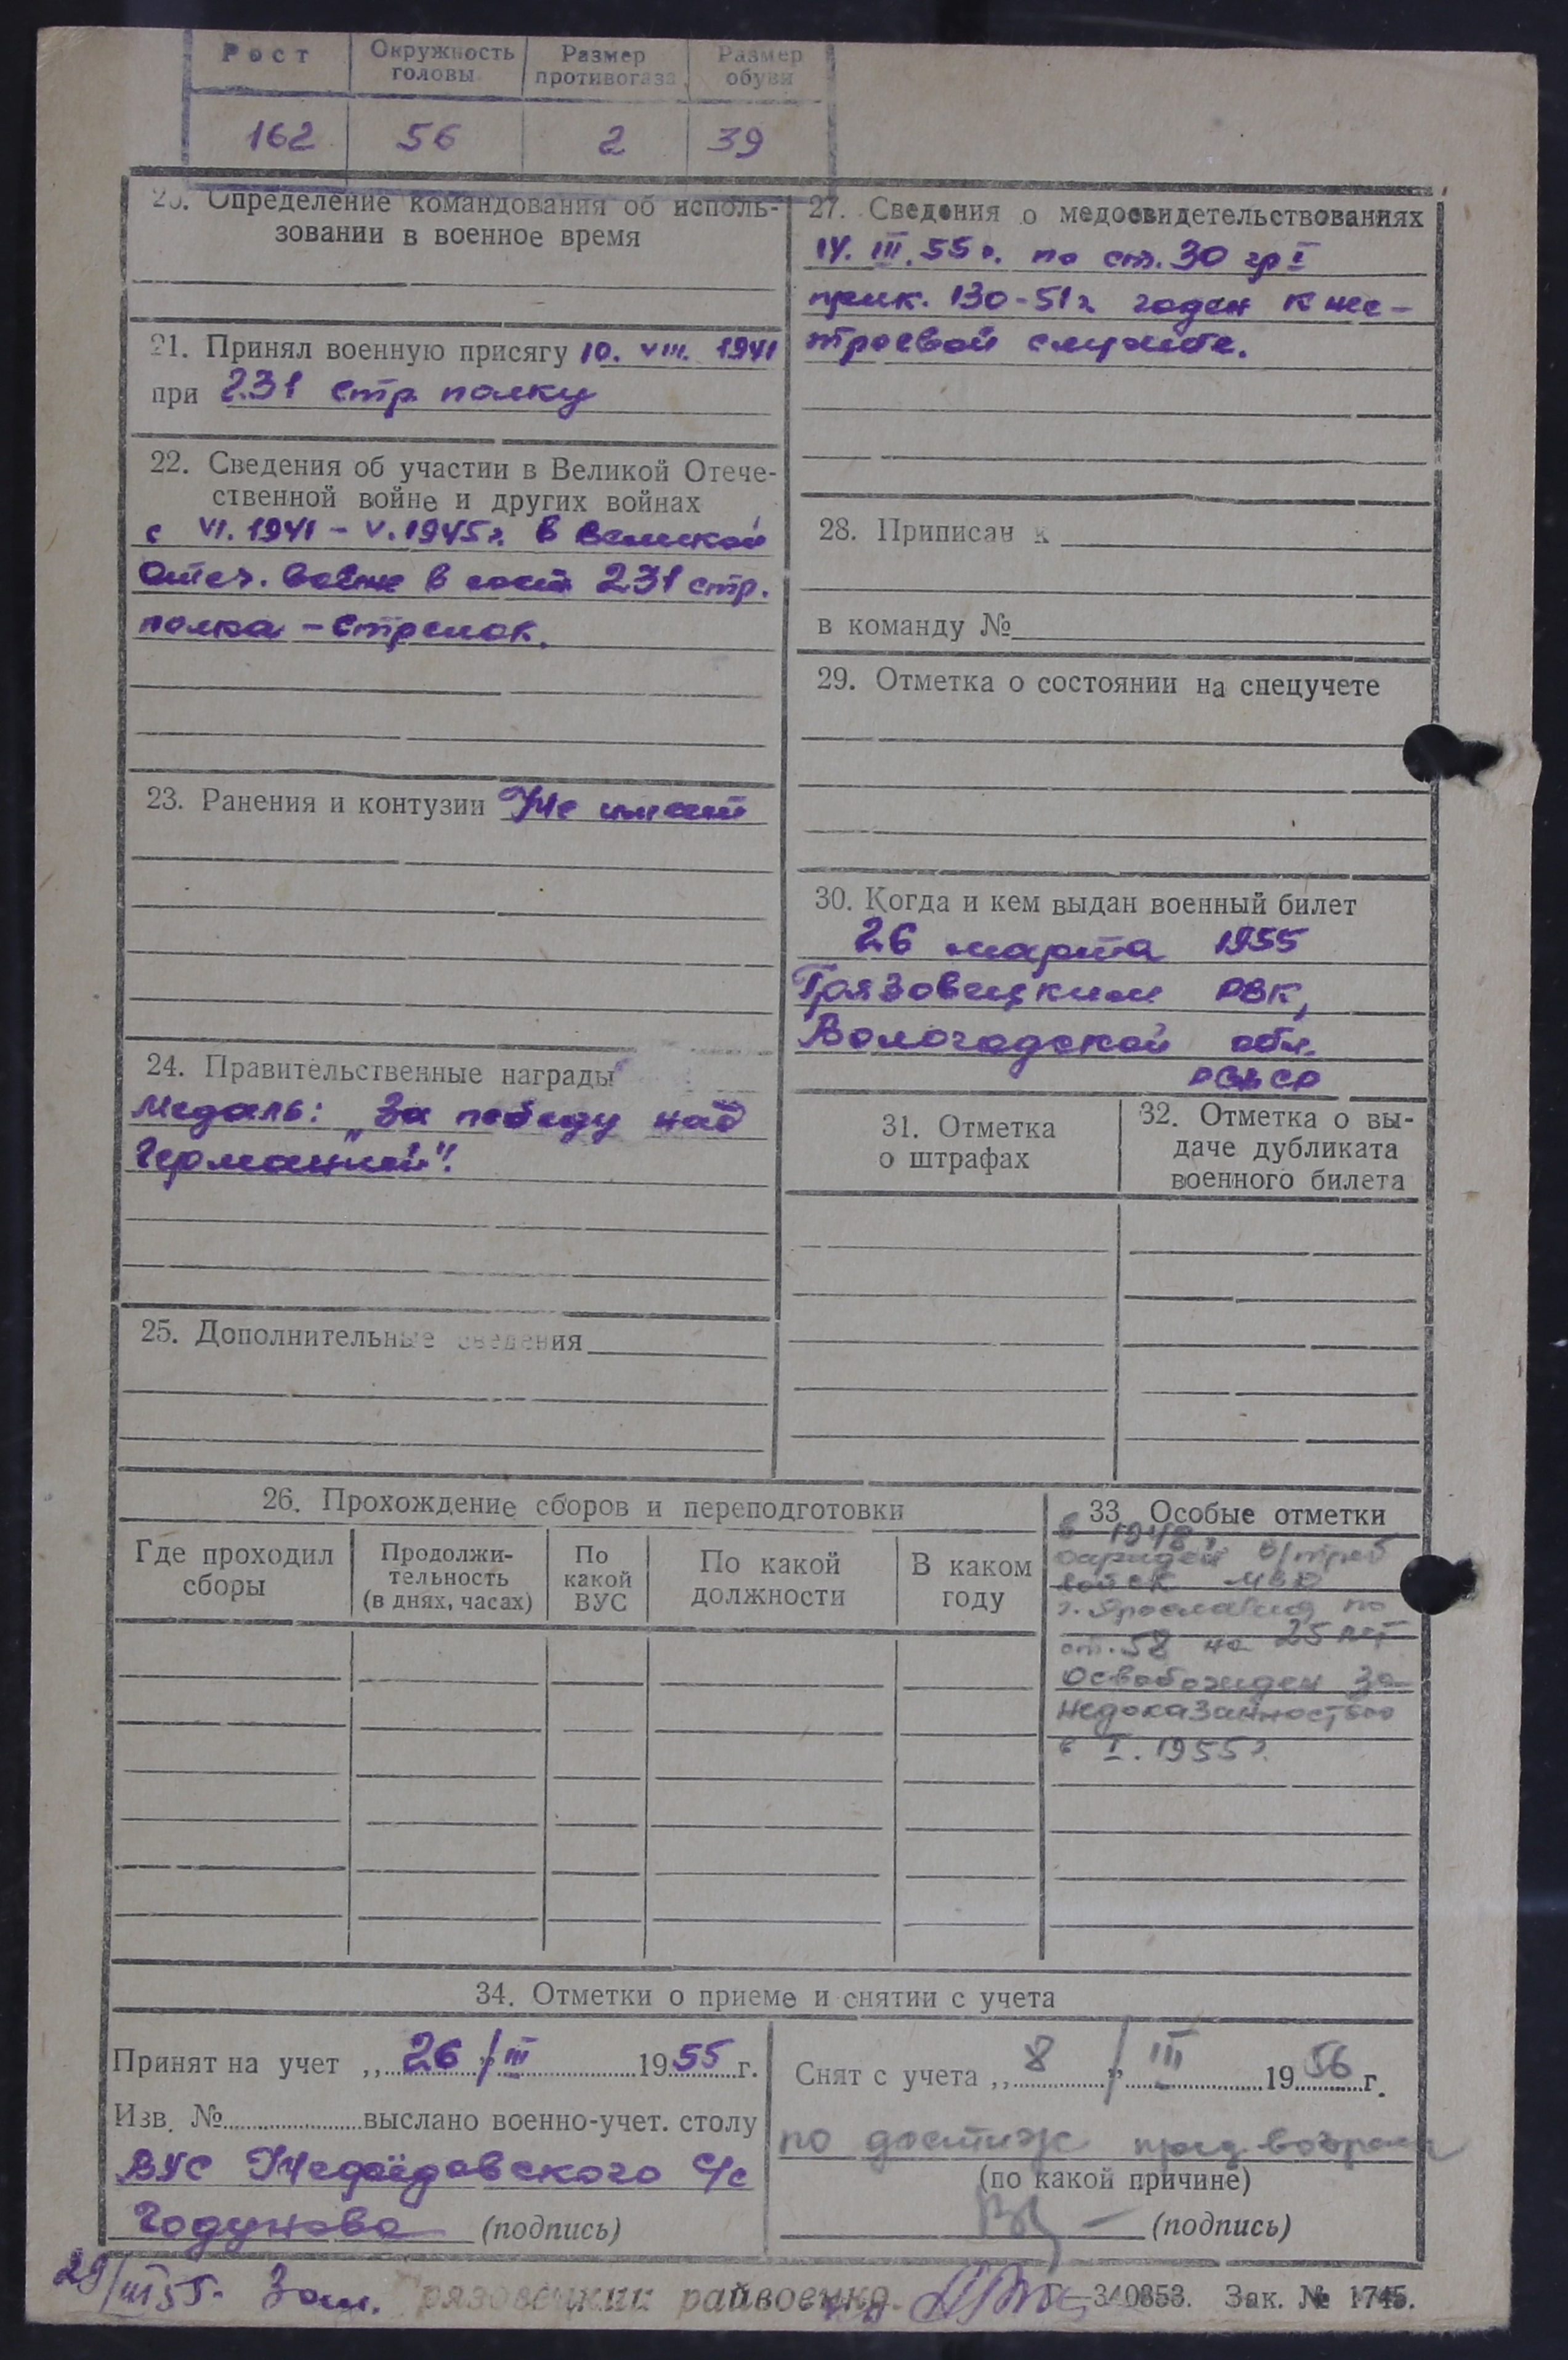 Рост Окружность головы Размер противогаза Размер обуви
162 56 2 39
20. Определение командования об исполь-
зовании в военное время
21. Принял военную присягу 10. VIII. 1941
при 231 стр. полку
22. Сведения об участии в Великой Отече-
ственной войне и других войнах
с VI. 1941 - V. 1945 г. в Великой
Отеч. войне в сост 231 стр.
полка - стрелок.
23. Ранения и контузии Не имеет
24. Правительственные награды
Медаль: „За победу над
Германией".
25. Дополнительные сведения
27. Сведения о медосвидетельствованиях
14. III. 55 г. по ст. 30 гр I
прик. 130-51 г годен к не-
строевой службе.
28. Приписан к
в команду №
29. Отметка о состоянии на спецучете
30. Когда и кем выдан военный билет
26 марта 1955
Грязовецким РВК,
Вологодской обл.
РСФСР
31. Отметка
о штрафах
32. Отметка о вы-
даче дубликата
военного билета
26. Прохождение сборов и переподготовки
Где проходил
сборы
Продолжи-
тельность
(в днях, часах)
По
какой
ВУС
По какой
должности
В каком
году
33 Особые отметки
в 1948 г.
осужден В/триб
войск МВД
г. Ярославля по
ст. 58 на 25 лет
Освобожден за
недоказанностью
в I. 1955 г.
34. Отметки о приеме и снятии с учета
Принят на учет „ 26 " III 1955 г.
Изв. № выслано военно-учет. столу
ВУС Нефёдовского С/с
Годунова (подпись)
Снят с учета „ 8 " III 1956 г.
по достиж пред возраста
(по какой причине)
(подпись)
29/III 55. Зам. Грязовецкий райвоенко
Г-340853. Зак. № 1745.